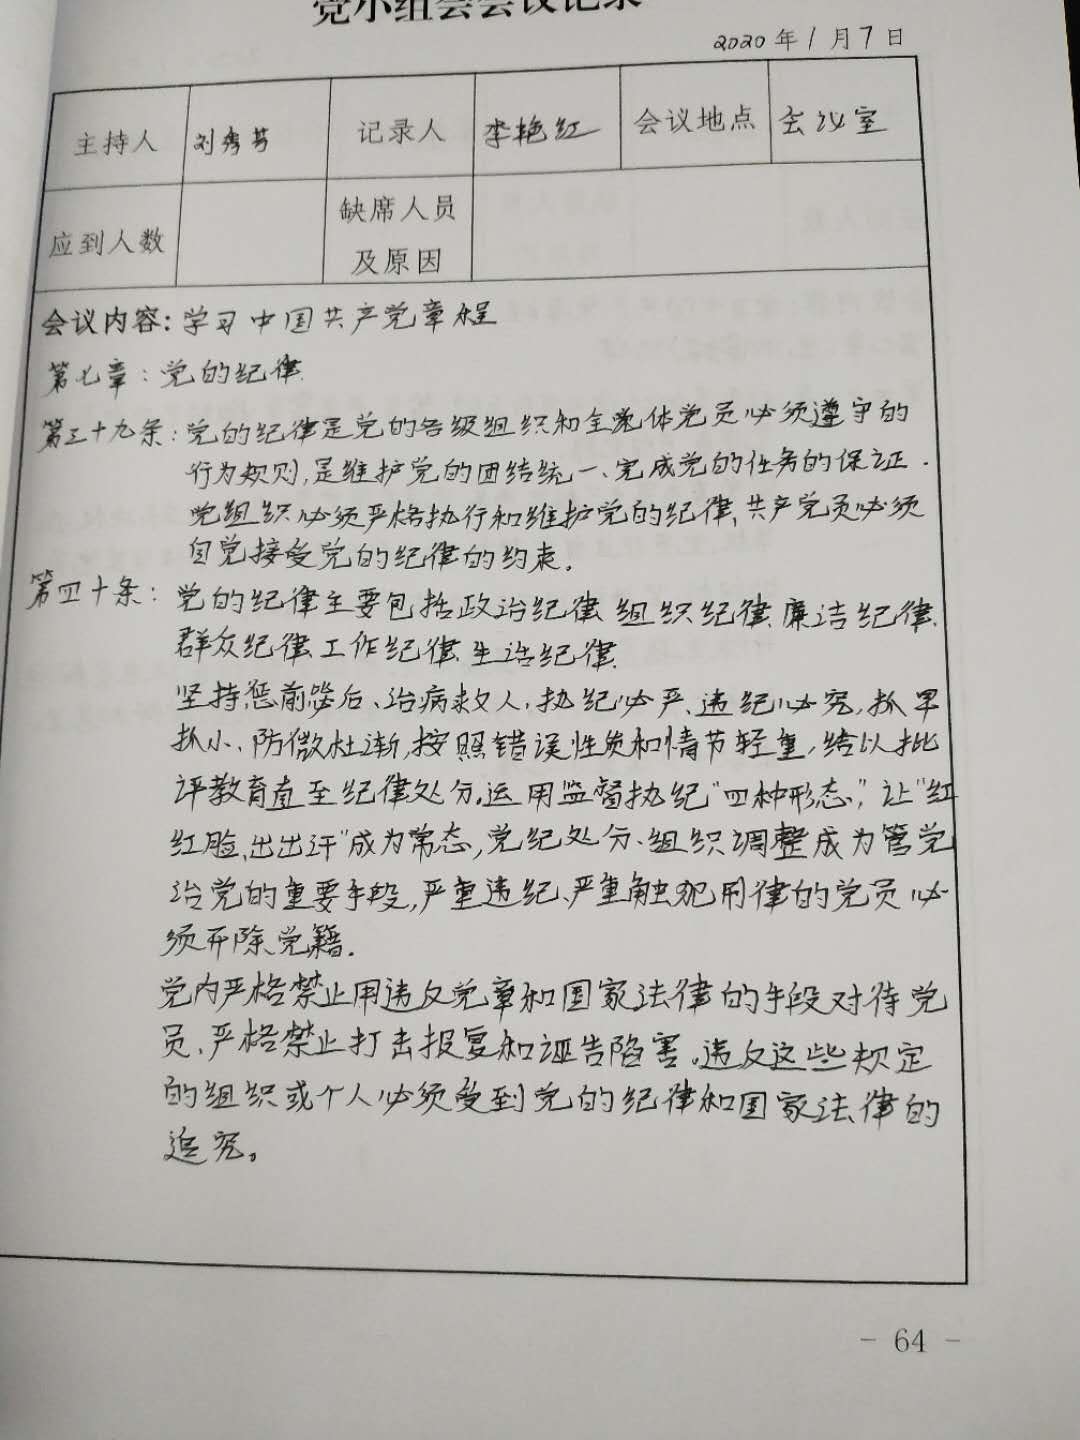 党小组会会议记录
2020年1月7日
主持人 刘秀芳 记录人 李艳红 会议地点 会议室
应到人数 缺席人员
及原因
会议内容：学习中国共产党章程
第七章：党的纪律
第三十九条：党的纪律是党的各级组织和全党体党员必须遵守的
行为规则，是维护党的团结统一、完成党的任务的保证．
党组织必须严格执行和维护党的纪律，共产党员必须
自觉接受党的纪律的约束．
第四十条：党的纪律主要包括政治纪律、组织纪律、廉洁纪律、
群众纪律、工作纪律、生活纪律．
坚持惩前毖后、治病救人，执纪必严、违纪必究，抓早
抓小、防微杜渐，按照错误性质和情节轻重，给以批
评教育直至纪律处分。运用监督执纪"四种形态"，让"红
红脸、出出汗"成为常态，党纪处分、组织调整成为管党
治党的重要手段，严重违纪、严重触犯刑律的党员必
须开除党籍．
党内严格禁止用违反党章和国家法律的手段对待党
员、严格禁止打击报复和诬告陷害。违反这些规定
的组织或个人必须受到党的纪律和国家法律的
追究。
- 64 -